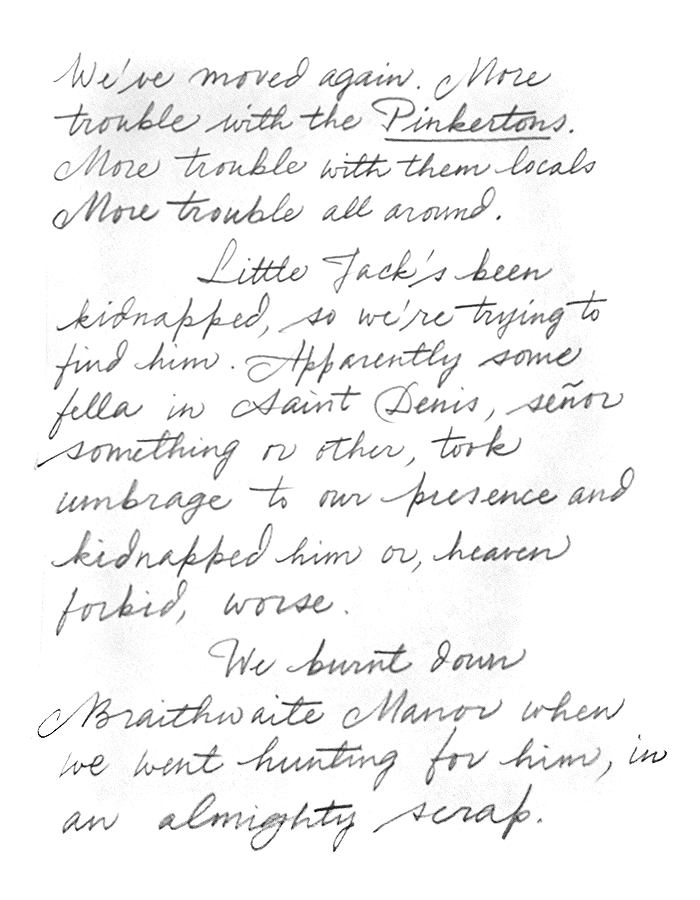 We've moved again. More
trouble with the Pinkertons.
More trouble with them locals
More trouble all around.
Little Jack's been
kidnapped, so we're trying to
find him. Apparently some
fella in Saint Denis, señor
something or other, took
umbrage to our presence and
kidnapped him or, heaven
forbid, worse.
We burnt down
Braithwaite Manor when
we went hunting for him, in
an almighty scrap.